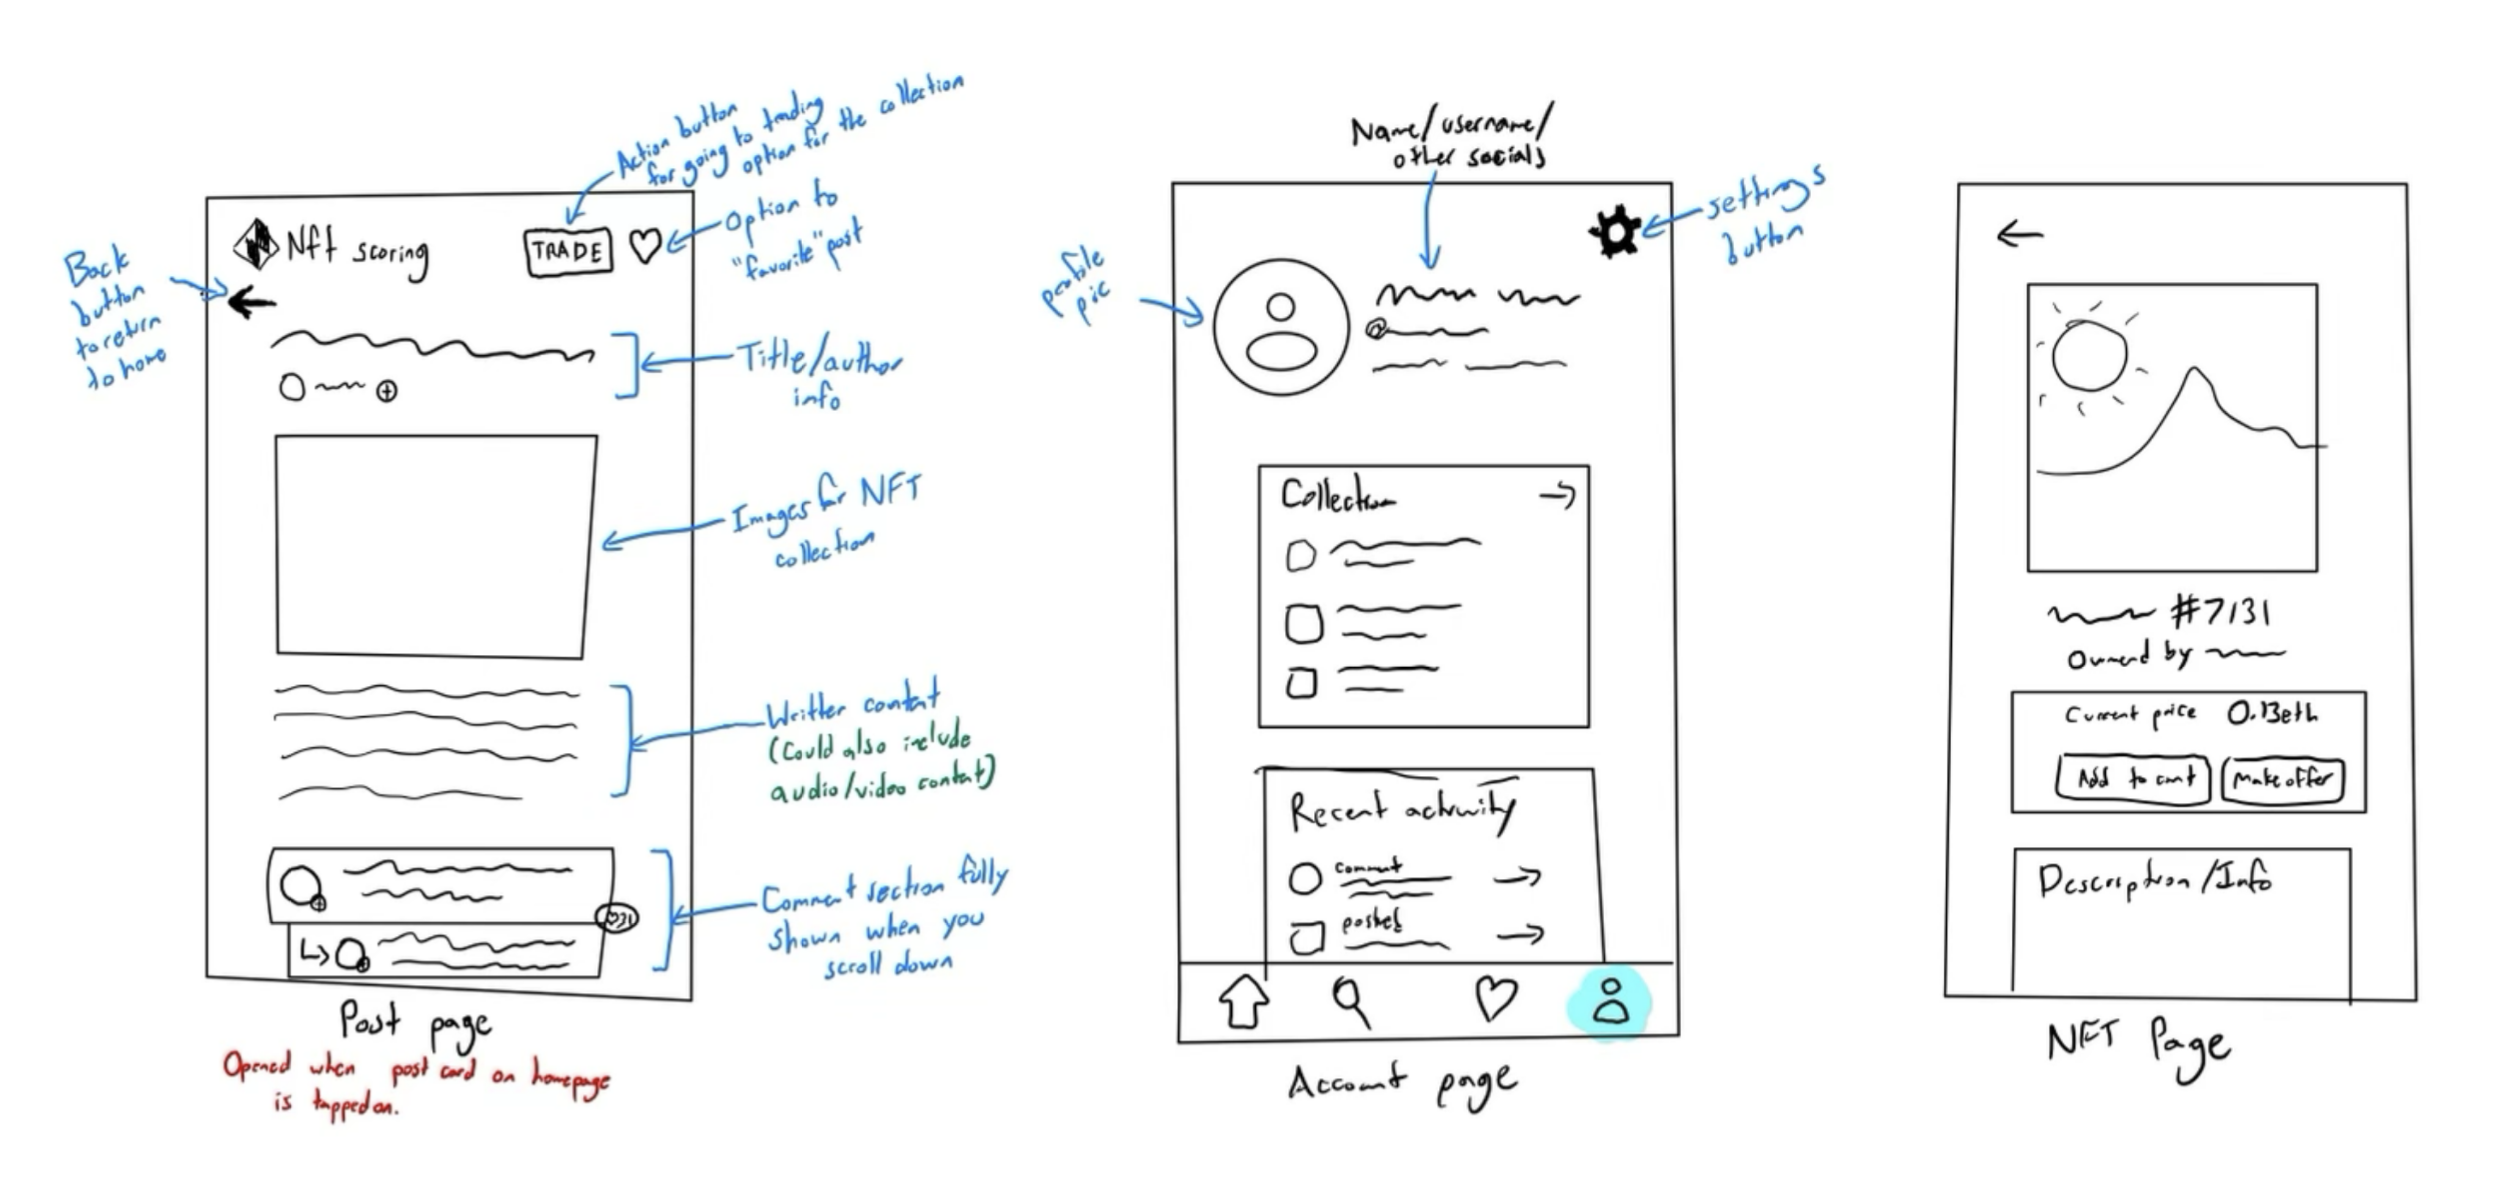 Action button
for going to trading
option for the collection
Nft scoring
TRADE
Option to
"favorite" post
Back
button
to return
to home
Title/author
info
Images for NFT
collection
Written content
(Could also include
audio/video content)
Comment section fully
shown when you
scroll down
31
Post page
Opened when post card on homepage
is tapped on.
Name/username/
other socials
settings
button
profile
pic
@
Collection
Recent activity
comment
posted
Account page
#7131
Owned by
Current price 0.13eth
Add to cart
Make offer
Description/Info
NFT Page